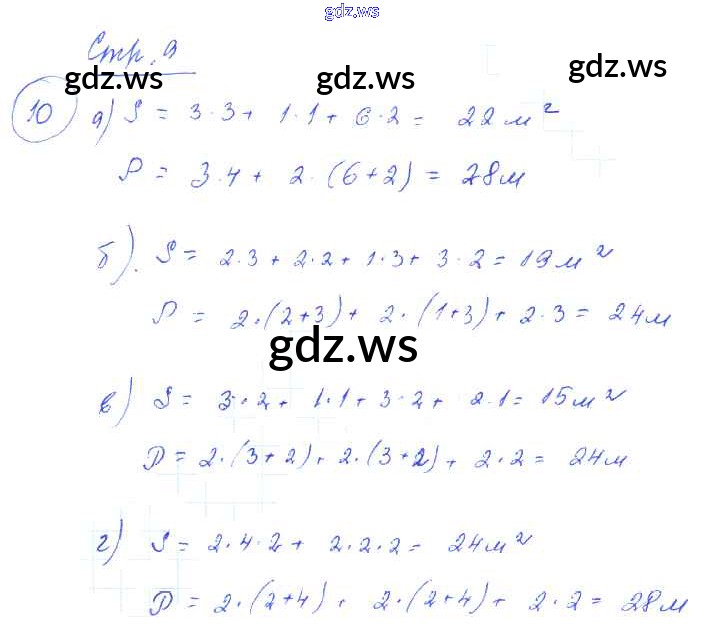 gdz.ws
Стр. 9
gdz.ws gdz.ws gdz.ws
10 а) S = 3·3 + 1·1 + 6·2 = 22 м²
P = 3·4 + 2·(6+2) = 28 м
б). S = 2·3 + 2·2 + 1·3 + 3·2 = 19 м²
P = 2·(2+3) + 2·(1+3) + 2·3 = 24 м
gdz.ws
в) S = 3·2 + 1·1 + 3·2 + 2·1 = 15 м²
P = 2·(3+2) + 2·(3+2) + 2·2 = 24 м
г) S = 2·4·2 + 2·2·2 = 24 м²
P = 2·(2+4) + 2·(2+4) + 2·2 = 28 м